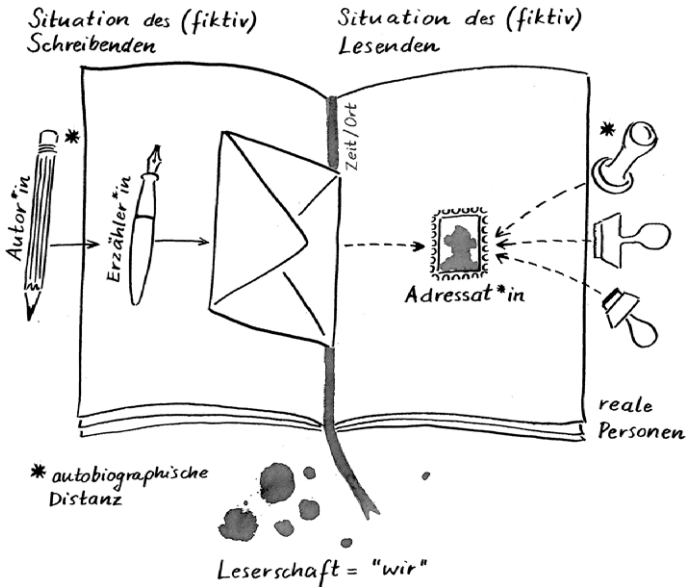 Situation des (fiktiv)
Schreibenden
Situation des (fiktiv)
Lesenden
*
Autor*in
Erzähler*in
Zeit/Ort
*
Adressat*in
reale
Personen
* autobiographische
Distanz
Leserschaft = "wir"